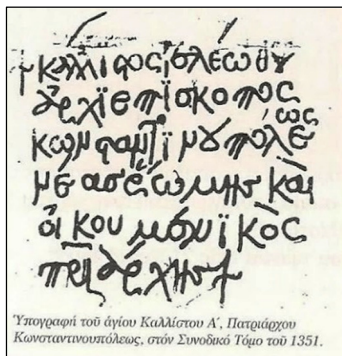 † κάλλιστος ἐλέω θυ
ἀρχϊεπίσκοπος
κωνσταντϊνουπόλεως
νέας ρώμης και
οἰκουμενϊκὸς
πριάρχης †
Ὑπογραφή τοῦ ἁγίου Καλλίστου Α΄, Πατριάρχου
Κωνσταντινουπόλεως, στόν Συνοδικό Τόμο τοῦ 1351.